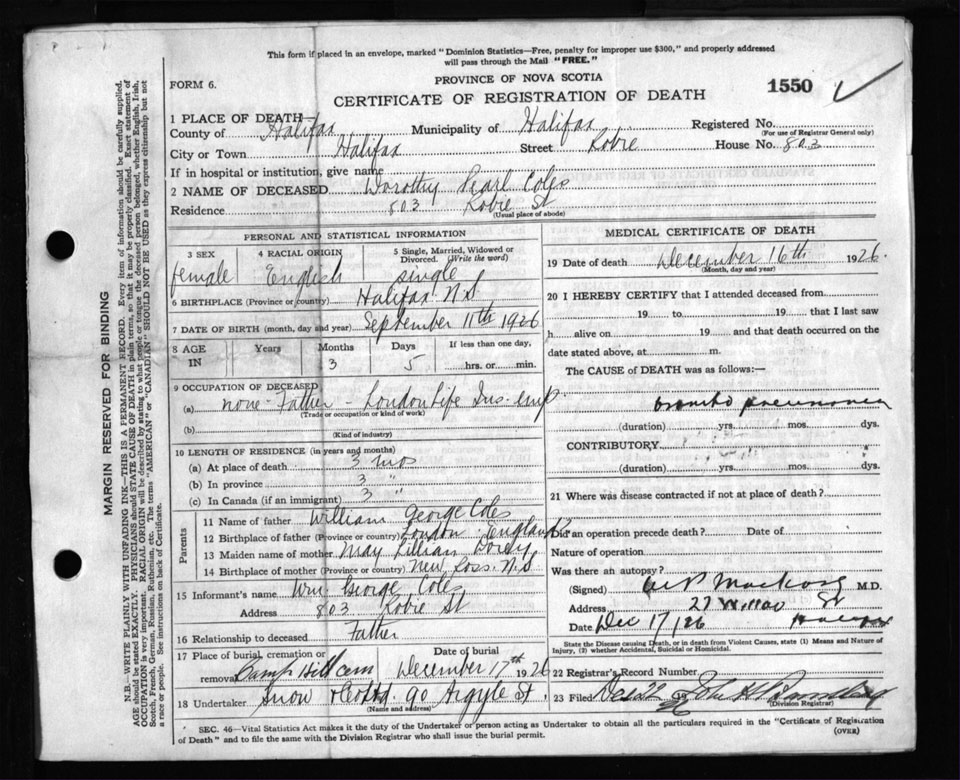 This form if placed in an envelope, marked "Dominion Statistics—Free, penalty for improper use $300," and properly addressed
will pass through the Mail "FREE."
PROVINCE OF NOVA SCOTIA
FORM 6.
CERTIFICATE OF REGISTRATION OF DEATH
1550
1 PLACE OF DEATH—
County of Halifax Municipality of Halifax Registered No.
(For use of Registrar General only)
City or Town Halifax Street Robie House No. 803
If in hospital or institution, give name
2 NAME OF DECEASED Dorothy Pearl Coles
Residence 803 Robie St
(Usual place of abode)
PERSONAL AND STATISTICAL INFORMATION
3 SEX 4 RACIAL ORIGIN 5 Single, Married, Widowed or Divorced. (Write the word)
female English single
6 BIRTHPLACE (Province or country) Halifax N S
7 DATE OF BIRTH (month, day and year) September 11th 1926
8 AGE IN Years Months 3 Days 5 If less than one day, hrs. or min.
9 OCCUPATION OF DECEASED
(a) none - Father - London Life Ins. emp
(Trade or occupation or kind of work)
(b)
(Kind of industry)
10 LENGTH OF RESIDENCE (in years and months)
(a) At place of death 3 mos
(b) In province 3 "
(c) In Canada (if an immigrant) 3 "
Parents
11 Name of father William George Coles
12 Birthplace of father (Province or country) London England
13 Maiden name of mother May Lillian
14 Birthplace of mother (Province or country) New Ross N S
15 Informant's name Wm George Coles
Address 803 Robie St
16 Relationship to deceased Father
17 Place of burial, cremation or removal Camp Hill cem Date of burial December 17th 1926
18 Undertaker Snow & Co Ltd. 90 Argyle St.
(Name and address)
MEDICAL CERTIFICATE OF DEATH
19 Date of death December 16th 1926.
(Month, day and year)
20 I HEREBY CERTIFY that I attended deceased from
19 to 19 that I last saw
h alive on 19 and that death occurred on the
date stated above, at m.
The CAUSE of DEATH was as follows:—
Broncho pneumonia
(duration) yrs. mos. dys.
CONTRIBUTORY
(duration) yrs. mos. dys.
21 Where was disease contracted if not at place of death?
Did an operation precede death? Date of
Nature of operation
Was there an autopsy?
(Signed) M.D.
Address 27 St
Date Dec 17/26 Halifax
State the Disease causing Death, or in death from Violent Causes, state (1) Means and Nature of
Injury, (2) whether Accidental, Suicidal or Homicidal.
22 Registrar's Record Number
23 Filed Dec 22
(Division Registrar)
SEC. 46—Vital Statistics Act makes it the duty of the Undertaker or person acting as Undertaker to obtain all the particulars required in the "Certificate of Registration
of Death" and to file the same with the Division Registrar who shall issue the burial permit.
(OVER)
MARGIN RESERVED FOR BINDING
N.B.—WRITE PLAINLY WITH UNFADING INK—THIS IS A PERMANENT RECORD. Every item of information should be carefully supplied.
AGE should be stated EXACTLY. PHYSICIANS should STATE CAUSE OF DEATH in plain terms, so that it may be properly classified. Exact statement of
OCCUPATION is very important. RACIAL ORIGIN will be described by stating to what people or tongue the deceased person belonged, whether English, Irish,
Scotch, French, German, Russian, Ruthenian, etc. The terms "AMERICAN" or "CANADIAN" SHOULD NOT BE USED as they express citizenship but not
a race or people. See instructions on back of Certificate.